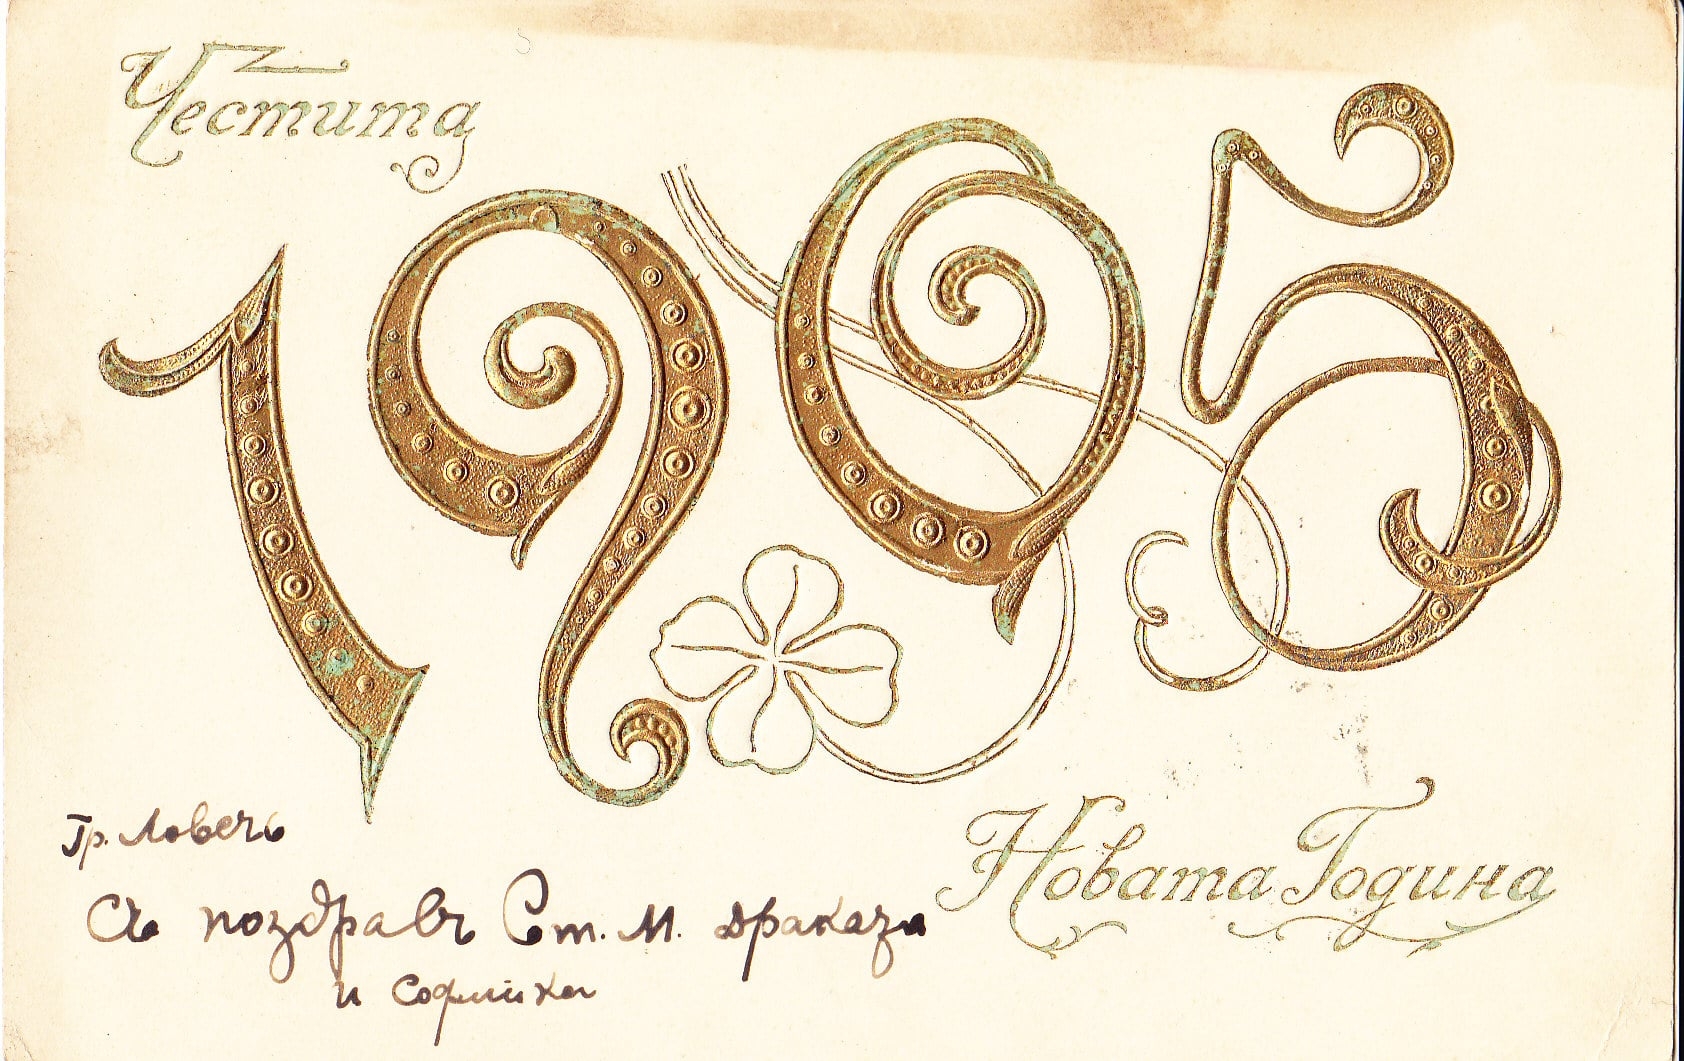 Честита
1905
Новата Година
Гр. Ловечъ
Съ поздравъ Ст. М. Драказа
и Софийка